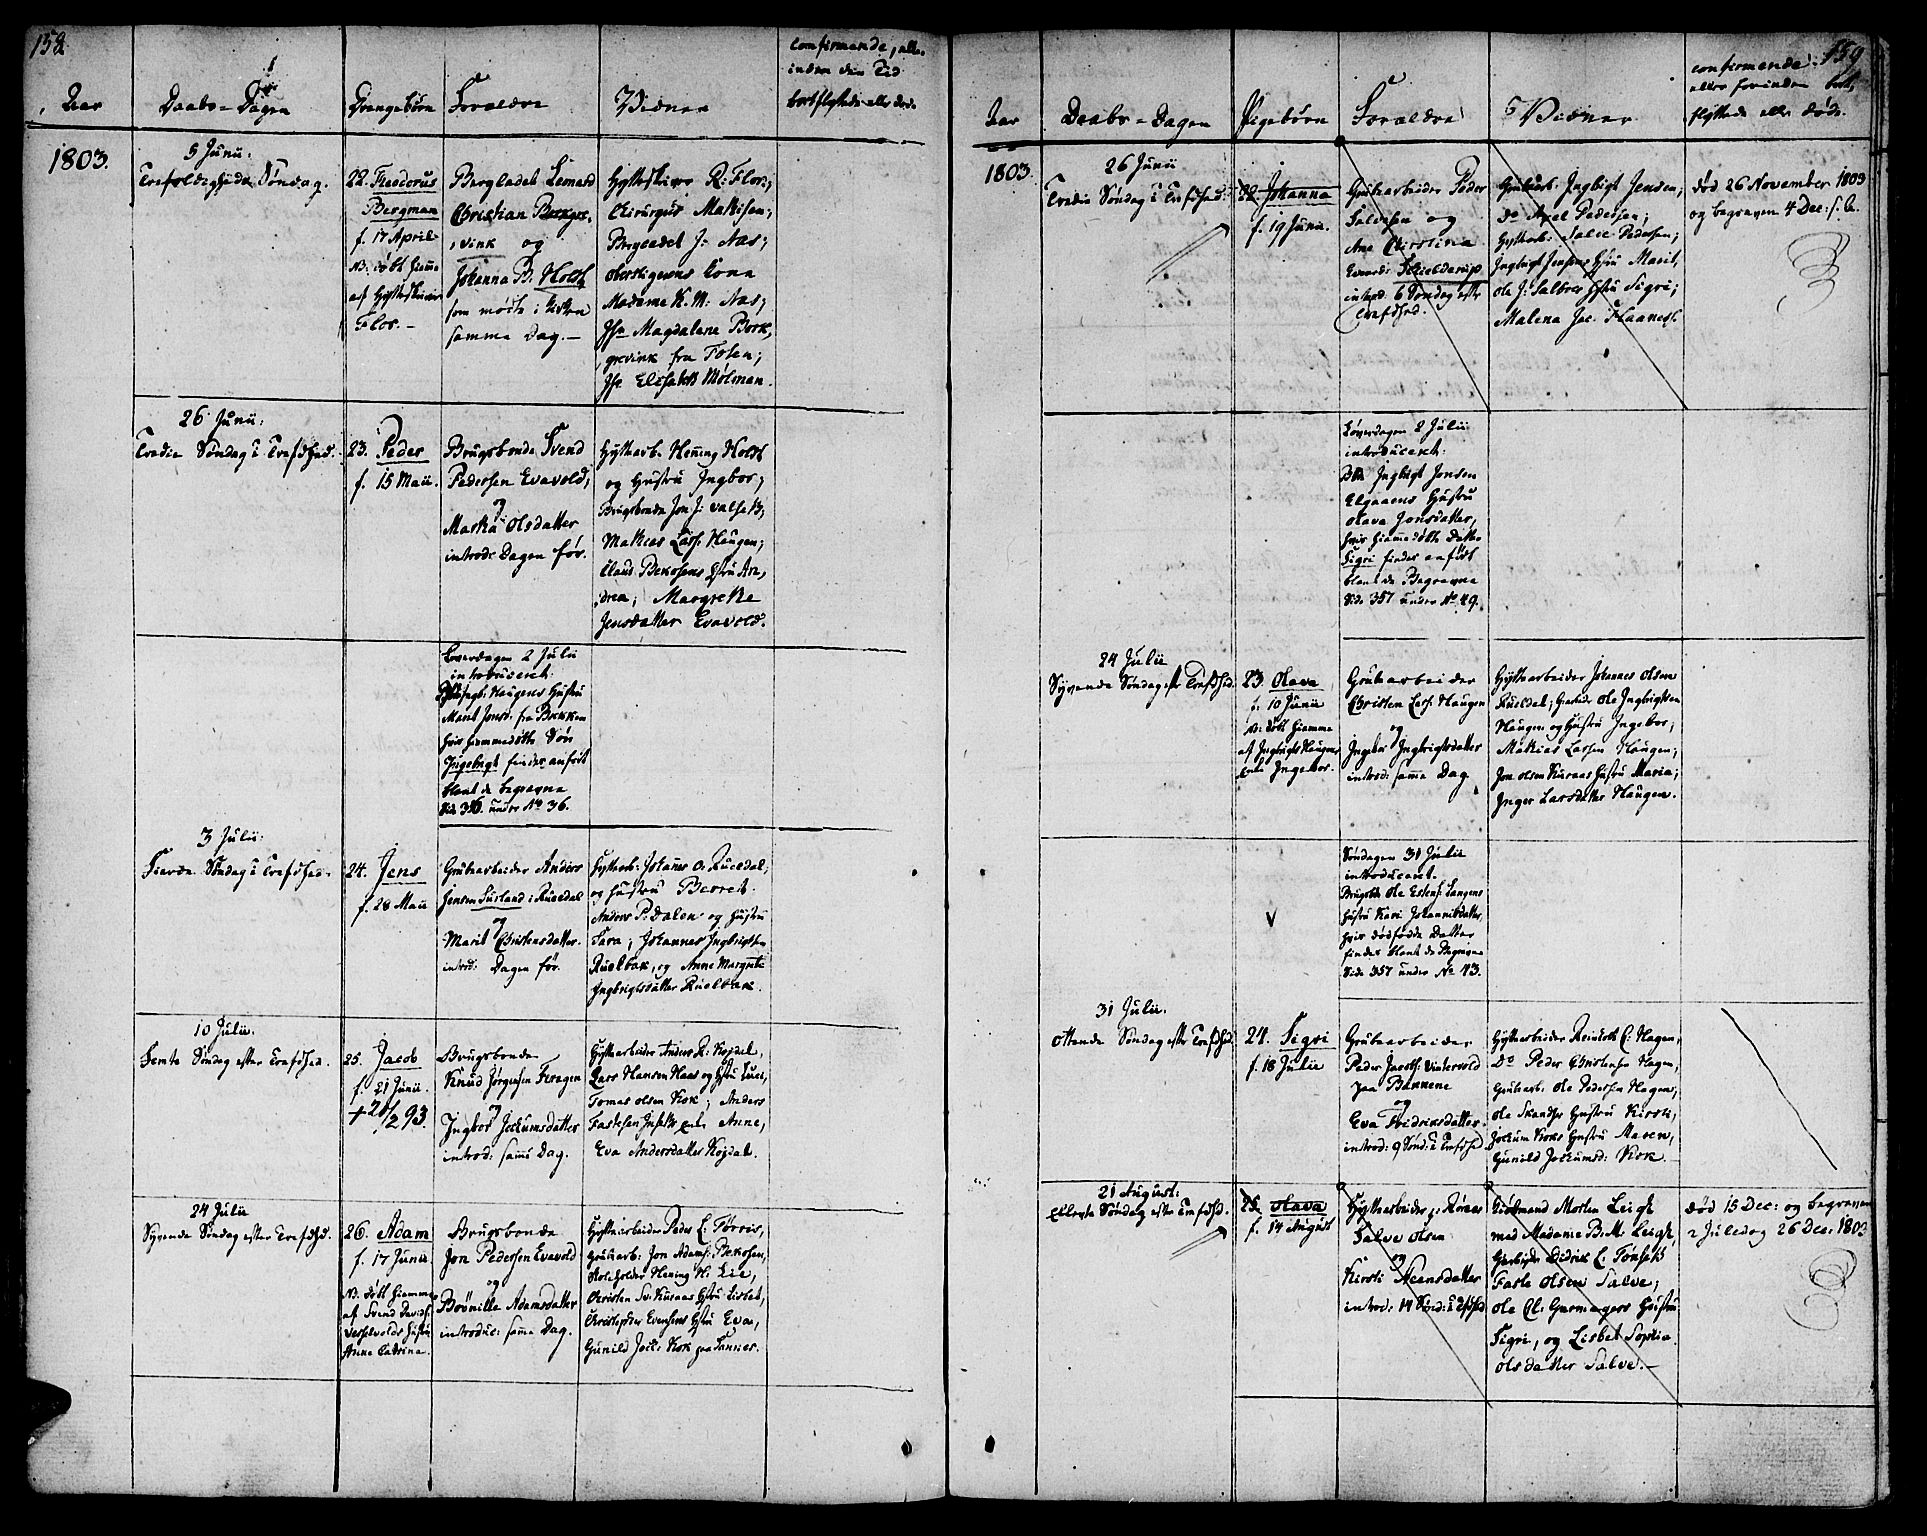 158
Aar
Daabs-Dagen
Drengebørn
Forældre
Vidner
confirmerede, eller
inden den Tid
bortflyttede eller døde
1803.
5 Junii:
Trefoldigheds Søndag.
22. Theodorus
Bergman
f. 17 April
NB. døbt hiemme
af Hytteskriver
Flor.-
Bergcadet Lemord
Christian Borkgre,
,vink og
Johanna B. Holst
som mødte i kirken
samme Dag.-
Hytteskriver R: Flor;
Chirurgus Mathisen;
Bergcadet J: Aas;
oberstigerens kone
Madame K. M: Aas;
Jfr Magdalene Bork,
grevink fra Tolen;
Jfr Elisabeth Mølman.
26 Junii:
Tredie Søndag i Trefdhed.
23. Peder
f. 15 Maii.
Brugsbonde Svend
Pedersen Evavold;
og
Martha Olsdatter
introd: Dagen før.
Hyttearb. Hening Holdt
og Hustru Ingbor;
Brugsbonde Jon J: Valset;
Mathias Lars. Haugen;
Claus Bekosens Hstru An,
,drea; Margrethe
Jensdatter Evavold.
Løverdagen 2 Julii
introduceret:
Ingb: Haugens Hustru
Marit Jonsd. fra Bekken
hvis hiemmedøbte Søn
Ingebrigt findes anført
blant de begravne
Side 356. under No 36.
3 Julii:
Fierde Søndag i Trefdhed.
24. Jens
f. 28 Maii
Grubearbeider Anders
Jensen Sursand i Rueldal
og
Marit Christensdatter.
introd: Dagen før.
Hyttearb: Johanes O. Rueedal;
og Hustru Berret.
Anders P. Dalen og Hustru
Sara; Johannes Ingbrigtsen
Ruelbak, og Anne Margrete
Ingbrigtsdatter Ruelbak.
10 Julii.
Femte Søndag efter Trefdhed.
25. Jacob
f. 21 Junii.
+ 20/2 93.
Brugsbonde
Knud Jørgensen Feragen
og
Ingbor Jochumsdatter
introd: samme Dag.
Hyttearbeider Anders R: Kojdel,
Lars Hansen Haas og Hstru Luci,
Tomas Olsen Kok; Anders
Fastesen Enke Anne,
Eva Andersdatter Kojdal.
24 Julii
Syvende Søndag efter Trefdhd.
26. Adam
f. 17 Junii
NB. døbt hiemme
af Svend Davids.
Hustru
Anne Catrina.
Brugsbonde
Jon Pedersen Evavold
og
Brønille Adamsdatter
introduc: samme Dag.
Hyttearbeider Peder C. Tørris,
grubearb: Jon Adams: Bekosen,
Rolsholder Hening H. Lie,
Christen Sv. Kuraas Hstru Lisbet,
Christopher Evensens Hstru Eva,
Gunild Joch: Kok paa Sannes.
159
Aar
Daabs-Dagen
Pigebørn
Forældre
Vidner
confirmerede
eller forinden bort,
flyttede eller døde.
1803
26 Junii
Tredie Søndag i Trefdhed.
22. Johanna
f. 19 Junii.
Grubearbeider Peder
Salvesen og
Ane Chirstina
Evensd: Schieldarup
introd. 6 Søndag efter
Trefdhed.
Grubearb. Ingbrigt Jensen,
do Axel Pedersen;
Hyttearb: Salve Pedersen;
Ingbrigt Jensens Hstru Marit,
Ole J: Salvers Hstru Sigri;
Malena Jac. Haanes.
død 26 November 1803
og begraven 4 Dec: s. A.
Løverdagen 2 Julii
introduceret:
Ingbrigt Jonsen
Elgaaens Hustru
Olava Jonsdatter,
hvis hiemmedøbte Datter
Sigri findes anført
blant de Begravne
Side 357 under No 49.
24 Julii
Syvende Søndag efter Trefdhed.
23. Olava
f. 10 Junii
NB: døbt hiemme
af Ingbrigt Haugens
Enke Ingebor.
Grubearbeider
Christen Lars. Haugen
og
Ingebor Ingbrigtsdatter
introd: samme Dag.
Hyttearbeider Johannes Olsen
Rueldal; Giarbeider Ole Ingbrigtsen
Haugen og Hustru Ingebor;
Mathias Larsen Haugen;
Jon Olsen Kuraas Hustru Maria;
Inger Larsdatter Haugen.
Søndagen 31 Julii
introduceret.
Brugsbde Ole Estens: Langens
Hustru Kari Johannisdatter,
hvis dødfødde Datter
findes blant de Begravne
Side 357 under No 43.
31 Julii.
Ottende Søndag efter Trefdhed.
24. Sigri
f. 18 Julii
Grubearbeider
Peder Jacobs: Vintervold
paa Bakkene
og
Eva Fridriksdatter.
introd: 9 Sønd: i Trefdhed
Hyttearbeider Reinholt C: Hagen,
Do Peder Christensen Hagen,
Grubearb. Ole Pedersen Hagen,
Ole Skandses Hustru Kirsti,
Jochum Koks Hustru Maren,
Gunild Jochumsd: Kok.
21 August:
Ellevte Søndag efter Trefdhd.
25. Olava
f. 14 August
Hyttearbeider p: Røraas
Salve Olsen
og
Kirsti Neensdatter
introd: 14 Sønd: i Trefdhed
Morten Leigh
med Madame B: M. Leigh,
Giarbeider Didrik C. Tønseth
Faste Olsen Salve;
Ole Cl: Garmagers Hustru
Sigri, og Lisbet Sophia
Olsdatter Salve.-
død 15 Dec: og begraven
2 Juledag 26 Dec: 1803